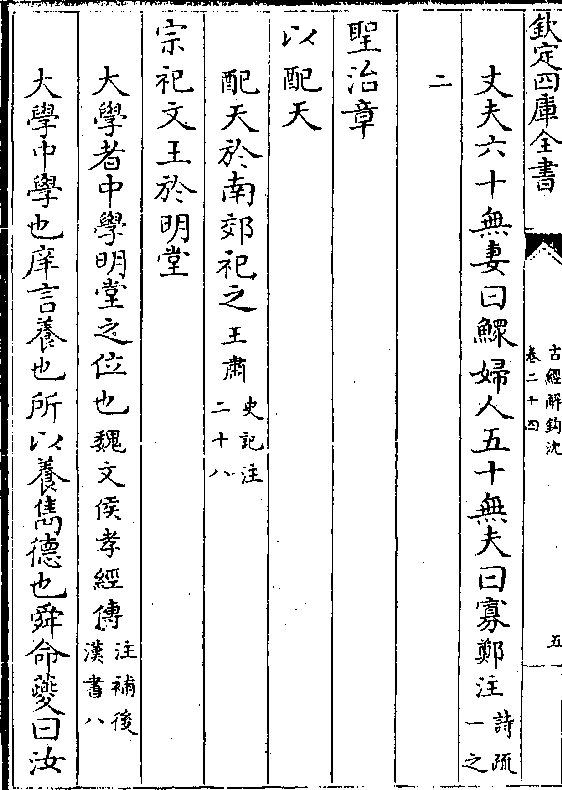 欽定四庫全書
古經解鉤沈
卷二十四
五
丈夫六十無妻曰鰥婦人五十無夫曰寡鄭注詩疏一之
二
聖治章
以配天
配天於南郊祀之王肅史記注二十八
宗祀文王於明堂
大學者中學明堂之位也魏文侯孝經傳注補後漢書八
大學中學也庠言養也所以養雋德也舜命夔曰汝